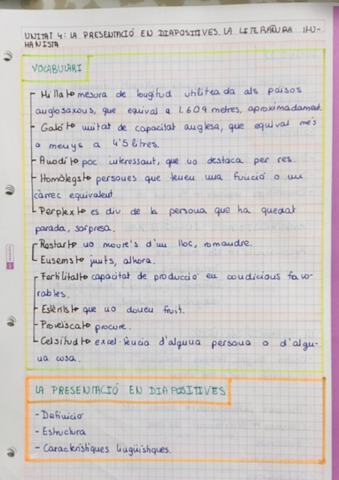 UNITAT 4: LA PRESENTACIÓ EN DIAPOSITIVES. LA LITERATURA HU-
MANISTA
VOCABULARI
- Milla→ mesura de longitud utilitzada als països
anglosaxons, que equival a 1.609 metres, aproximadament.
- Galó→ unitat de capacitat anglesa, que equival més
o menys a 4'5 litres.
- Anodí→ poc interessant, que no destaca per res.
- Homòlegs→ persones que tenen una funció o un
càrrec equivalent.
- Perplex→ es diu de la persona que ha quedat
parada, sorpresa.
- Restar→ no moure's d'un lloc, romandre.
- Ensems→ junts, alhora.
- Fertilitat→ capacitat de producció en condicions favo-
rables.
- Estèrils→ que no donen fruit.
- Proveïsca→ procure.
- Celsitud→ excel·lència d'alguna persona o d'algu-
na cosa.
LA PRESENTACIÓ EN DIAPOSITIVES
- Definició
- Estructura
- Característiques lingüístiques.